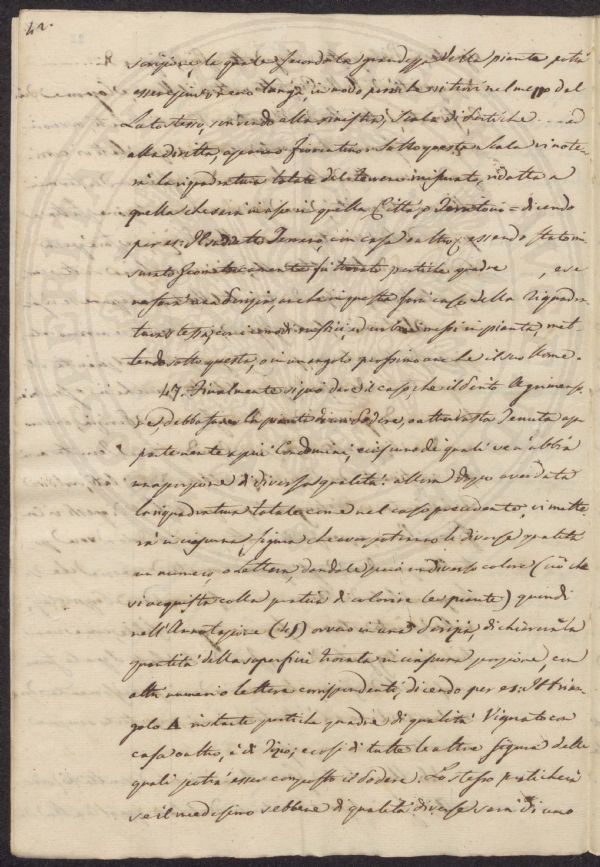 42.
scrizione, la quale secondo la grandezza della pianta potrà
essere più o meno lunga, in modo però che si trovi nel mezzo del
Lato stesso, scrivendo alla sinistra, Scala di Pertiche .... ed
alla diritta, a piano Fiorentino. Sotto questa Scala vi note-
rà la riquadratura totale del terreno misurato, ridotta a
quella che sarà in uso in quella Città, o Territorio = dicendo
per es: Il sudetto Terreno, con casa od altro, essendo stato mi-
surato Geometricamente fu trovato pertiche quadre , e se
ne farà una Scrizione, anche in questo fuori caso della riquadra-
tura stessa, con i comodi rustici, ed urbani messi in pianta, met-
tendo sotto questa, o in un angolo prossimo anche il suo Nome.
47. Finalmente si può dare il caso, che il Perito Agrimenso-
re, debba fare la pianta di un Podere, o altra vasta Tenuta ap-
partenente a più Condomini, ciascuno de quali ve n'abbia
una porzione di diversa qualità: allora dopo aver data
la riquadratura totale come nel caso precedente, vi mette-
rà in ciascuna figura che avea potranno le diverse qualità
un numero, o Lettera, dandole poi un diverso colore (ciò che
si acquista colla pratica di colorire le piante) quindi
nell'Annotazione (48) ovvero in una Scrizione, dichiarerà la
quantità della superficie trovata in ciascuna porzione, con
altri numeri o lettere corrispondenti, dicendo per es: Il trian-
golo A in tante pertiche quadre di qualità Vignato con
casa o altro, è di Tizio; e così di tutte le altre figure delle
quali potrà esser composto il Podere. Lo stesso praticherà
se il medesimo sebbene di qualità diverse sarà di uno